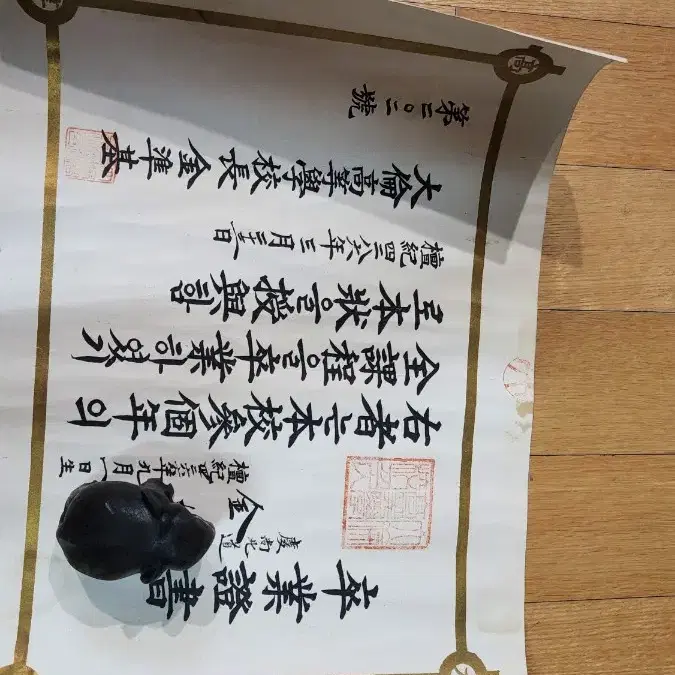 卒業證書
慶尙北道
金
檀紀四二六 年九月一日生
右者는本校參個年의
全課程을卒業하였기
로本狀을授與함
檀紀四二八六年三月 日
大倫高等學校長 金準基
第二〇二號
高